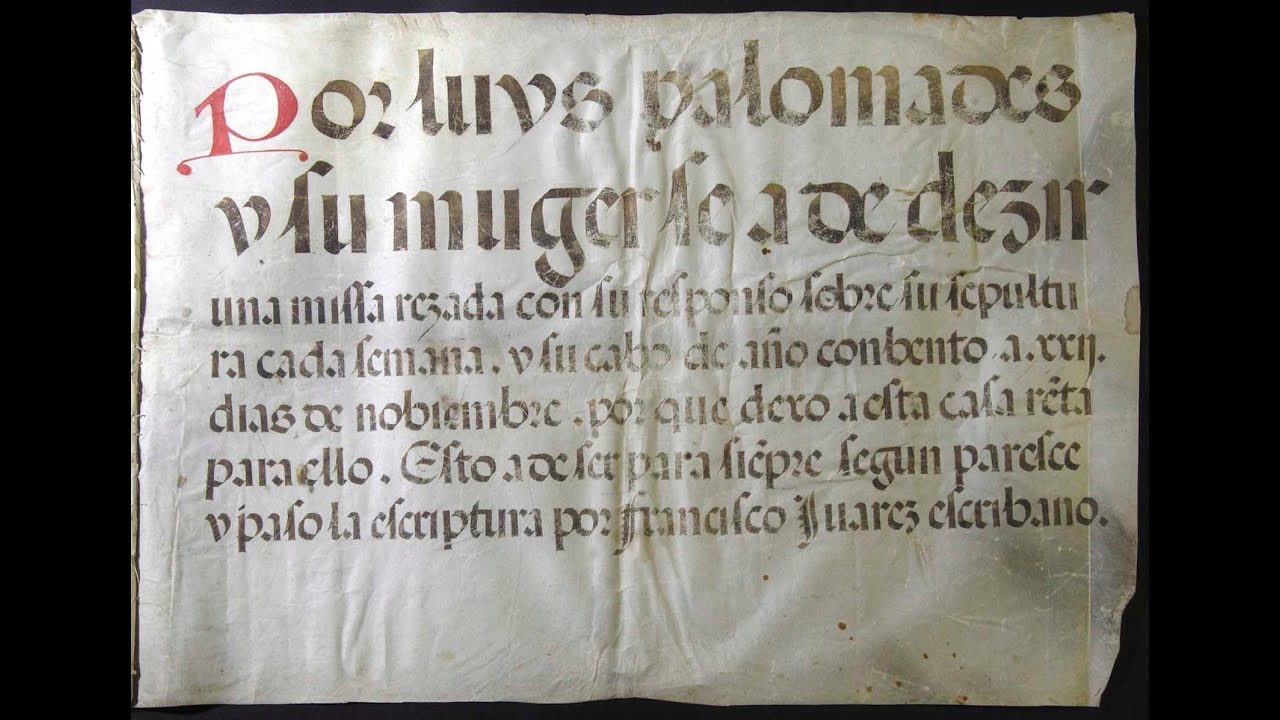 Por luys palomades
y su muger se a de dezir
una missa rezada con su responso sobre su sepultu
ra cada semana. y su cabo de año conbento .a. xxij.
dias de nobiembre .por que dexo a esta casa rẽta
para ello. Esto a de ser para siẽpre segun paresce
y paso la escriptura por francisco Juarez escribano.